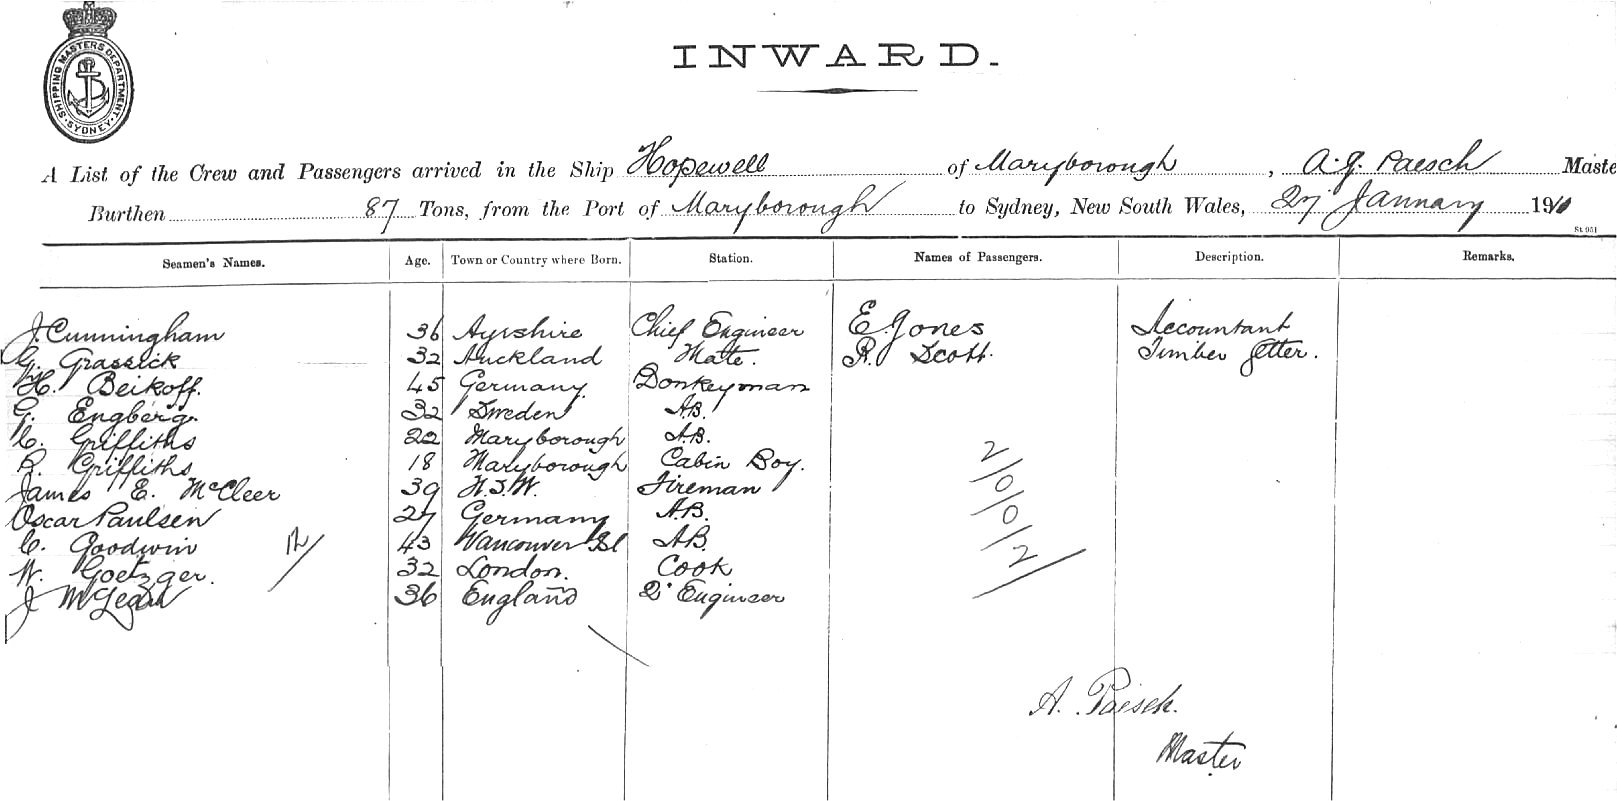 SHIPPING MASTERS DEPARTMENT. SYDNEY.
INWARD.
A List of the Crew and Passengers arrived in the Ship Hopewell of Maryborough, A. J. Paesch Maste
Burthen 87 Tons, from the Port of Maryborough to Sydney, New South Wales, 27 January 1910
St. 951
Seamen's Names. Age. Town or Country where Born. Station. Names of Passengers. Description. Remarks.
J. Cunningham 36 Ayrshire Chief Engineer E. Jones Accountant
G. Grassick 32 Auckland Mate. R. Scott. Timber Getter.
H. Beikoff. 45 Germany. Donkeyman
G. Engberg. 32 Sweden A.B.
C. Griffiths 22 Maryborough A.B.
R. Griffiths 18 Maryborough Cabin Boy.
James E. McCleer 39 N.S.W. Fireman
Oscar Paulsen 27 Germany A.B.
C. Goodwin 43 Vancouver Isl A.B.
W. Goetzger. 32 London. Cook
J McLean 36 England 2d Engineer
12/
2/0/0/2/
A. Paesch.
Master